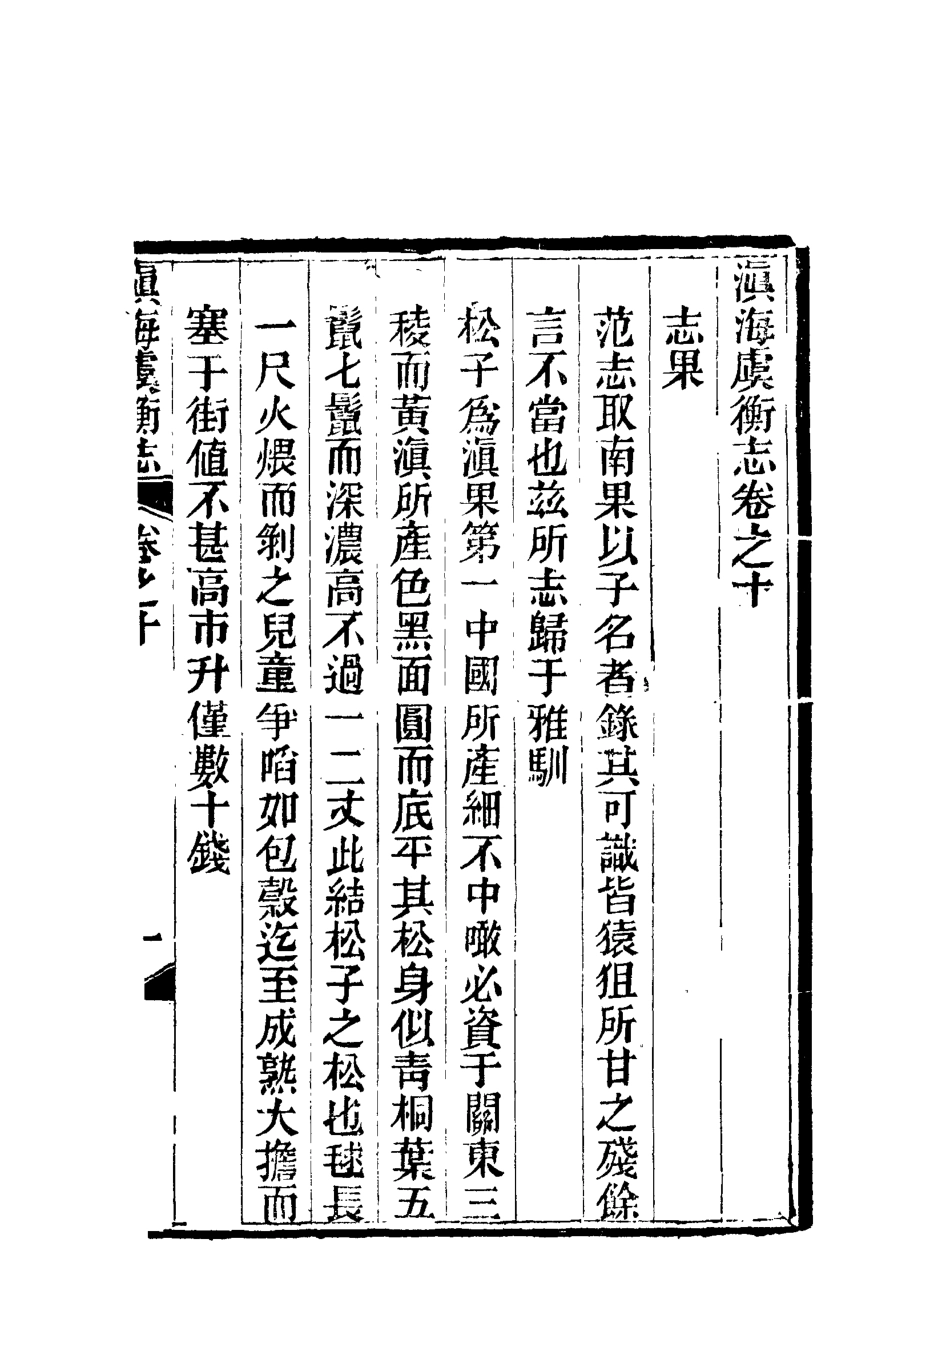 滇海虞衡志卷之十
志果
范志取南果以子名者錄其可識皆猿狙所甘之殘餘
言不當也茲所志歸于雅馴
松子爲滇果第一中國所產細不中噉必資于關東三
稜而黃滇所產色黑面圓而底平其松身似青桐葉五
鬣七鬣而深濃高不過一二丈此結松子之松也毬長
一尺火煨而剝之兒童爭啗如包穀迄至成熟大擔而
塞于街值不甚高市升僅數十錢
滇海虞衡志 卷之十 一